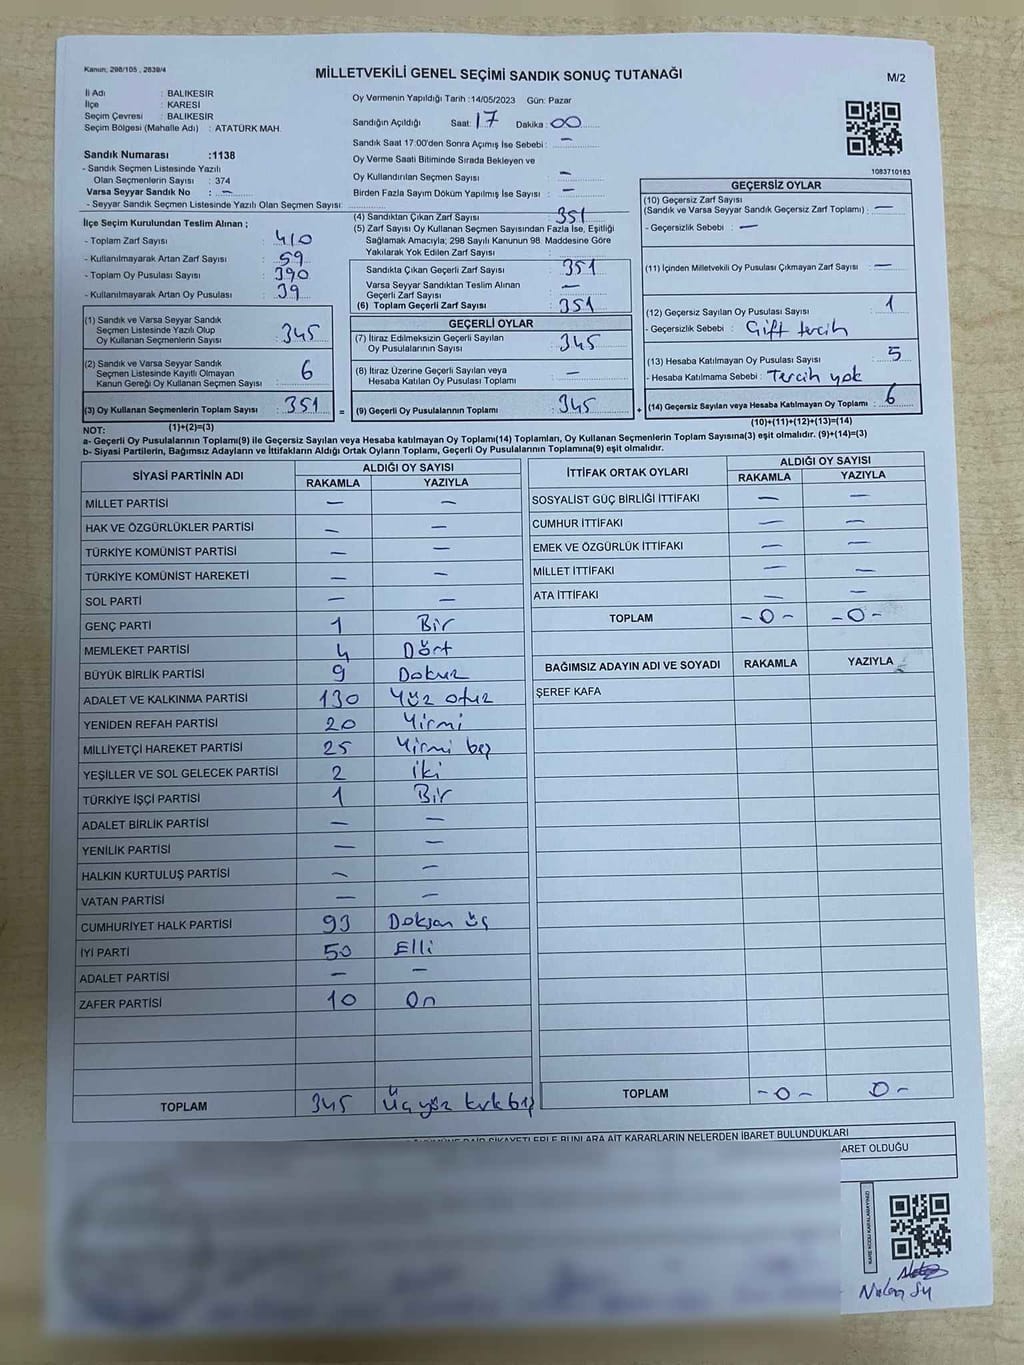 Kanun; 298/105 , 2839/4
MİLLETVEKİLİ GENEL SEÇİMİ SANDIK SONUÇ TUTANAĞI
M/2
İl Adı : BALIKESİR
İlçe : KARESİ
Seçim Çevresi : BALIKESİR
Seçim Bölgesi (Mahalle Adı) : ATATÜRK MAH.
Sandık Numarası :1138
- Sandık Seçmen Listesinde Yazılı
Olan Seçmenlerin Sayısı : 374
Varsa Seyyar Sandık No : –
- Seyyar Sandık Seçmen Listesinde Yazılı Olan Seçmen Sayısı:
Oy Vermenin Yapıldığı Tarih :14/05/2023 Gün: Pazar
Sandığın Açıldığı Saat: 17 Dakika: 00
Sandık Saat 17:00'den Sonra Açımış İse Sebebi : –
Oy Verme Saati Bitiminde Sırada Bekleyen ve
Oy Kullandırılan Seçmen Sayısı : –
Birden Fazla Sayım Döküm Yapılmış İse Sayısı : –
1083710183
İlçe Seçim Kurulundan Teslim Alınan ;
- Toplam Zarf Sayısı : 410
- Kullanılmayarak Artan Zarf Sayısı : 59
- Toplam Oy Pusulası Sayısı : 390
- Kullanılmayarak Artan Oy Pusulası : 39
(1) Sandık ve Varsa Seyyar Sandık
Seçmen Listesinde Yazılı Olup
Oy Kullanan Seçmenlerin Sayısı : 345
(2) Sandık ve Varsa Seyyar Sandık
Seçmen Listesinde Kayıtlı Olmayan
Kanun Gereği Oy Kullanan Seçmen Sayısı : 6
(3) Oy Kullanan Seçmenlerin Toplam Sayısı : 351
(4) Sandıktan Çıkan Zarf Sayısı : 351
(5) Zarf Sayısı Oy Kullanan Seçmen Sayısından Fazla İse, Eşitliği
Sağlamak Amacıyla; 298 Sayılı Kanunun 98. Maddesine Göre
Yakılarak Yok Edilen Zarf Sayısı :
Sandıkta Çıkan Geçerli Zarf Sayısı : 351
Varsa Seyyar Sandıktan Teslim Alınan
Geçerli Zarf Sayısı : –
(6) Toplam Geçerli Zarf Sayısı : 351
GEÇERLİ OYLAR
(7) İtiraz Edilmeksizin Geçerli Sayılan
Oy Pusulalarının Sayısı : 345
(8) İtiraz Üzerine Geçerli Sayılan veya
Hesaba Katılan Oy Pusulası Toplamı : –
= (9) Geçerli Oy Pusulalarının Toplamı : 345
GEÇERSİZ OYLAR
(10) Geçersiz Zarf Sayısı
(Sandık ve Varsa Seyyar Sandık Geçersiz Zarf Toplamı) : –
- Geçersizlik Sebebi : –
(11) İçinden Milletvekili Oy Pusulası Çıkmayan Zarf Sayısı : –
(12) Geçersiz Sayılan Oy Pusulası Sayısı : 1
- Geçersizlik Sebebi : Çift tercih
(13) Hesaba Katılmayan Oy Pusulası Sayısı : 5
- Hesaba Katılmama Sebebi : Tercih yok
+ (14) Geçersiz Sayılan veya Hesaba Katılmayan Oy Toplamı : 6
NOT: (1)+(2)=(3)
(10)+(11)+(12)+(13)=(14)
a- Geçerli Oy Pusulalarının Toplamı(9) ile Geçersiz Sayılan veya Hesaba katılmayan Oy Toplamı(14) Toplamları, Oy Kullanan Seçmenlerin Toplam Sayısına(3) eşit olmalıdır. (9)+(14)=(3)
b- Siyasi Partilerin, Bağımsız Adayların ve İttifakların Aldığı Ortak Oyların Toplamı, Geçerli Oy Pusulalarının Toplamına(9) eşit olmalıdır.
SİYASİ PARTİNİN ADI ALDIĞI OY SAYISI
RAKAMLA YAZIYLA
MİLLET PARTİSİ – –
HAK VE ÖZGÜRLÜKLER PARTİSİ – –
TÜRKİYE KOMÜNİST PARTİSİ – –
TÜRKİYE KOMÜNİST HAREKETİ – –
SOL PARTİ – –
GENÇ PARTİ 1 Bir
MEMLEKET PARTİSİ 4 Dört
BÜYÜK BİRLİK PARTİSİ 9 Dokuz
ADALET VE KALKINMA PARTİSİ 130 Yüz otuz
YENİDEN REFAH PARTİSİ 20 Yirmi
MİLLİYETÇİ HAREKET PARTİSİ 25 Yirmi beş
YEŞİLLER VE SOL GELECEK PARTİSİ 2 İki
TÜRKİYE İŞÇİ PARTİSİ 1 Bir
ADALET BİRLİK PARTİSİ – –
YENİLİK PARTİSİ – –
HALKIN KURTULUŞ PARTİSİ – –
VATAN PARTİSİ – –
CUMHURİYET HALK PARTİSİ 93 Doksan üç
İYİ PARTİ 50 Elli
ADALET PARTİSİ – –
ZAFER PARTİSİ 10 On
TOPLAM 345 Üç yüz kırk beş
İTTİFAK ORTAK OYLARI ALDIĞI OY SAYISI
RAKAMLA YAZIYLA
SOSYALİST GÜÇ BİRLİĞİ İTTİFAKI – –
CUMHUR İTTİFAKI – –
EMEK VE ÖZGÜRLÜK İTTİFAKI – –
MİLLET İTTİFAKI – –
ATA İTTİFAKI – –
TOPLAM -0- -0-
BAĞIMSIZ ADAYIN ADI VE SOYADI RAKAMLA YAZIYLA
ŞEREF KAFA
TOPLAM -0- 0-
DAİR ŞİKAYETLERLE BUNLARA AİT KARARLARIN NELERDEN İBARET BULUNDUKLARI
ARET OLDUĞU
KARE KODU KARALAMAYINIZ!